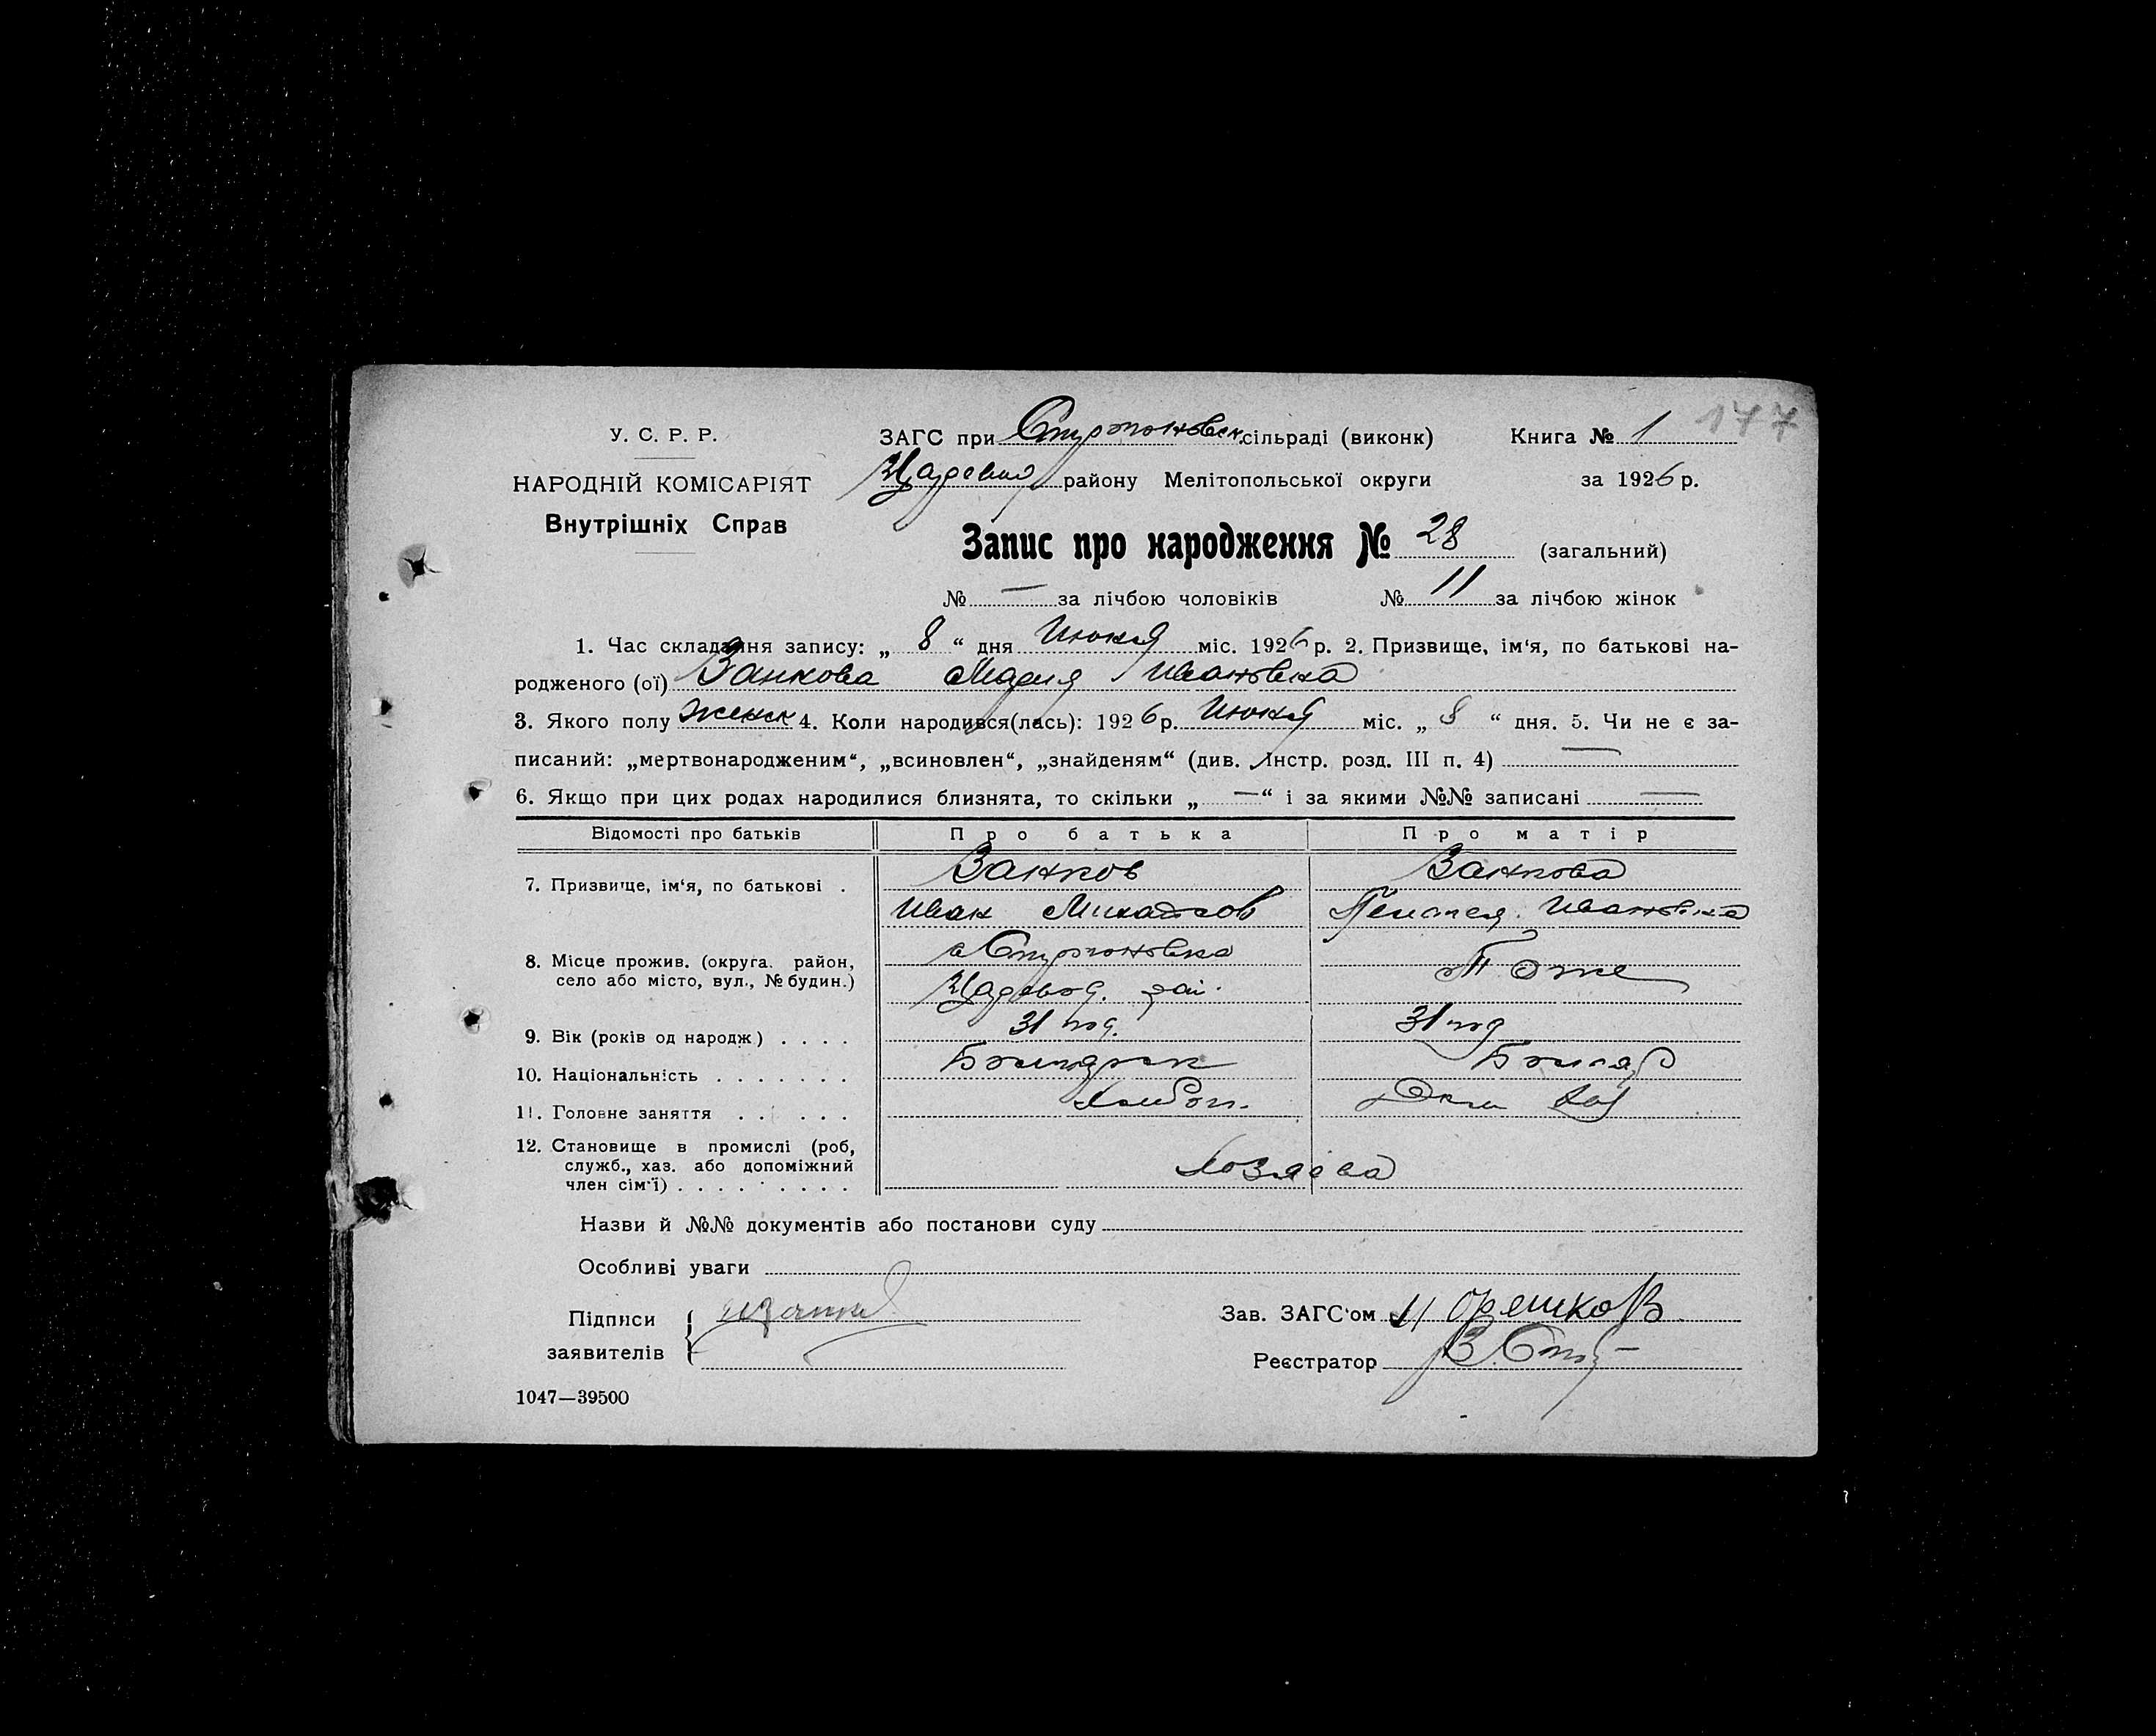 177
У. С. Р. Р.
ЗАГС при сільраді (виконк)
Книга № 1
НАРОДНІЙ КОМІСАРІЯТ
району Мелітопольської округи
за 1926 р.
Внутрішніх Справ
Запис про народження № 28 (загальний)
№ — за лічбою чоловіків № 11 за лічбою жінок
1. Час складання запису: „ 8 “ дня міс. 1926 р. 2. Призвище, ім‘я, по батькові на-
родженого (ої) Занкова Мария Ивановна
3. Якого полу женск 4. Коли народився(лась): 1926 р. міс. „ 8 “ дня. 5. Чи не є за-
писаний: „мертвонародженим“, „всиновлен“, „знайденям“ (див. Інстр. розд. III п. 4) —
6. Якщо при цих родах народилися близнята, то скільки „ — “ і за якими №№ записані —
Відомості про батьків Про батька Про матір
7. Призвище, ім‘я, по батькові . Занков Занкова
Иван Ивановна
8. Місце прожив. (округа. район,
село або місто, вул., № будин.) Тоже
9. Вік (років од народж) . . . . 31 год. 31 год
10. Національність . . . . . . .
11. Головне заняття . . . . . .
12. Становище в промислі (роб,
служб., хаз. або допоміжний
член сім‘ї) . . . . . . . . . хозяева
Назви й №№ документів або постанови суду
Особливі уваги
Підписи
заявителів
Зав. ЗАГС‘ом И Орешков
Реєстратор
1047—39500